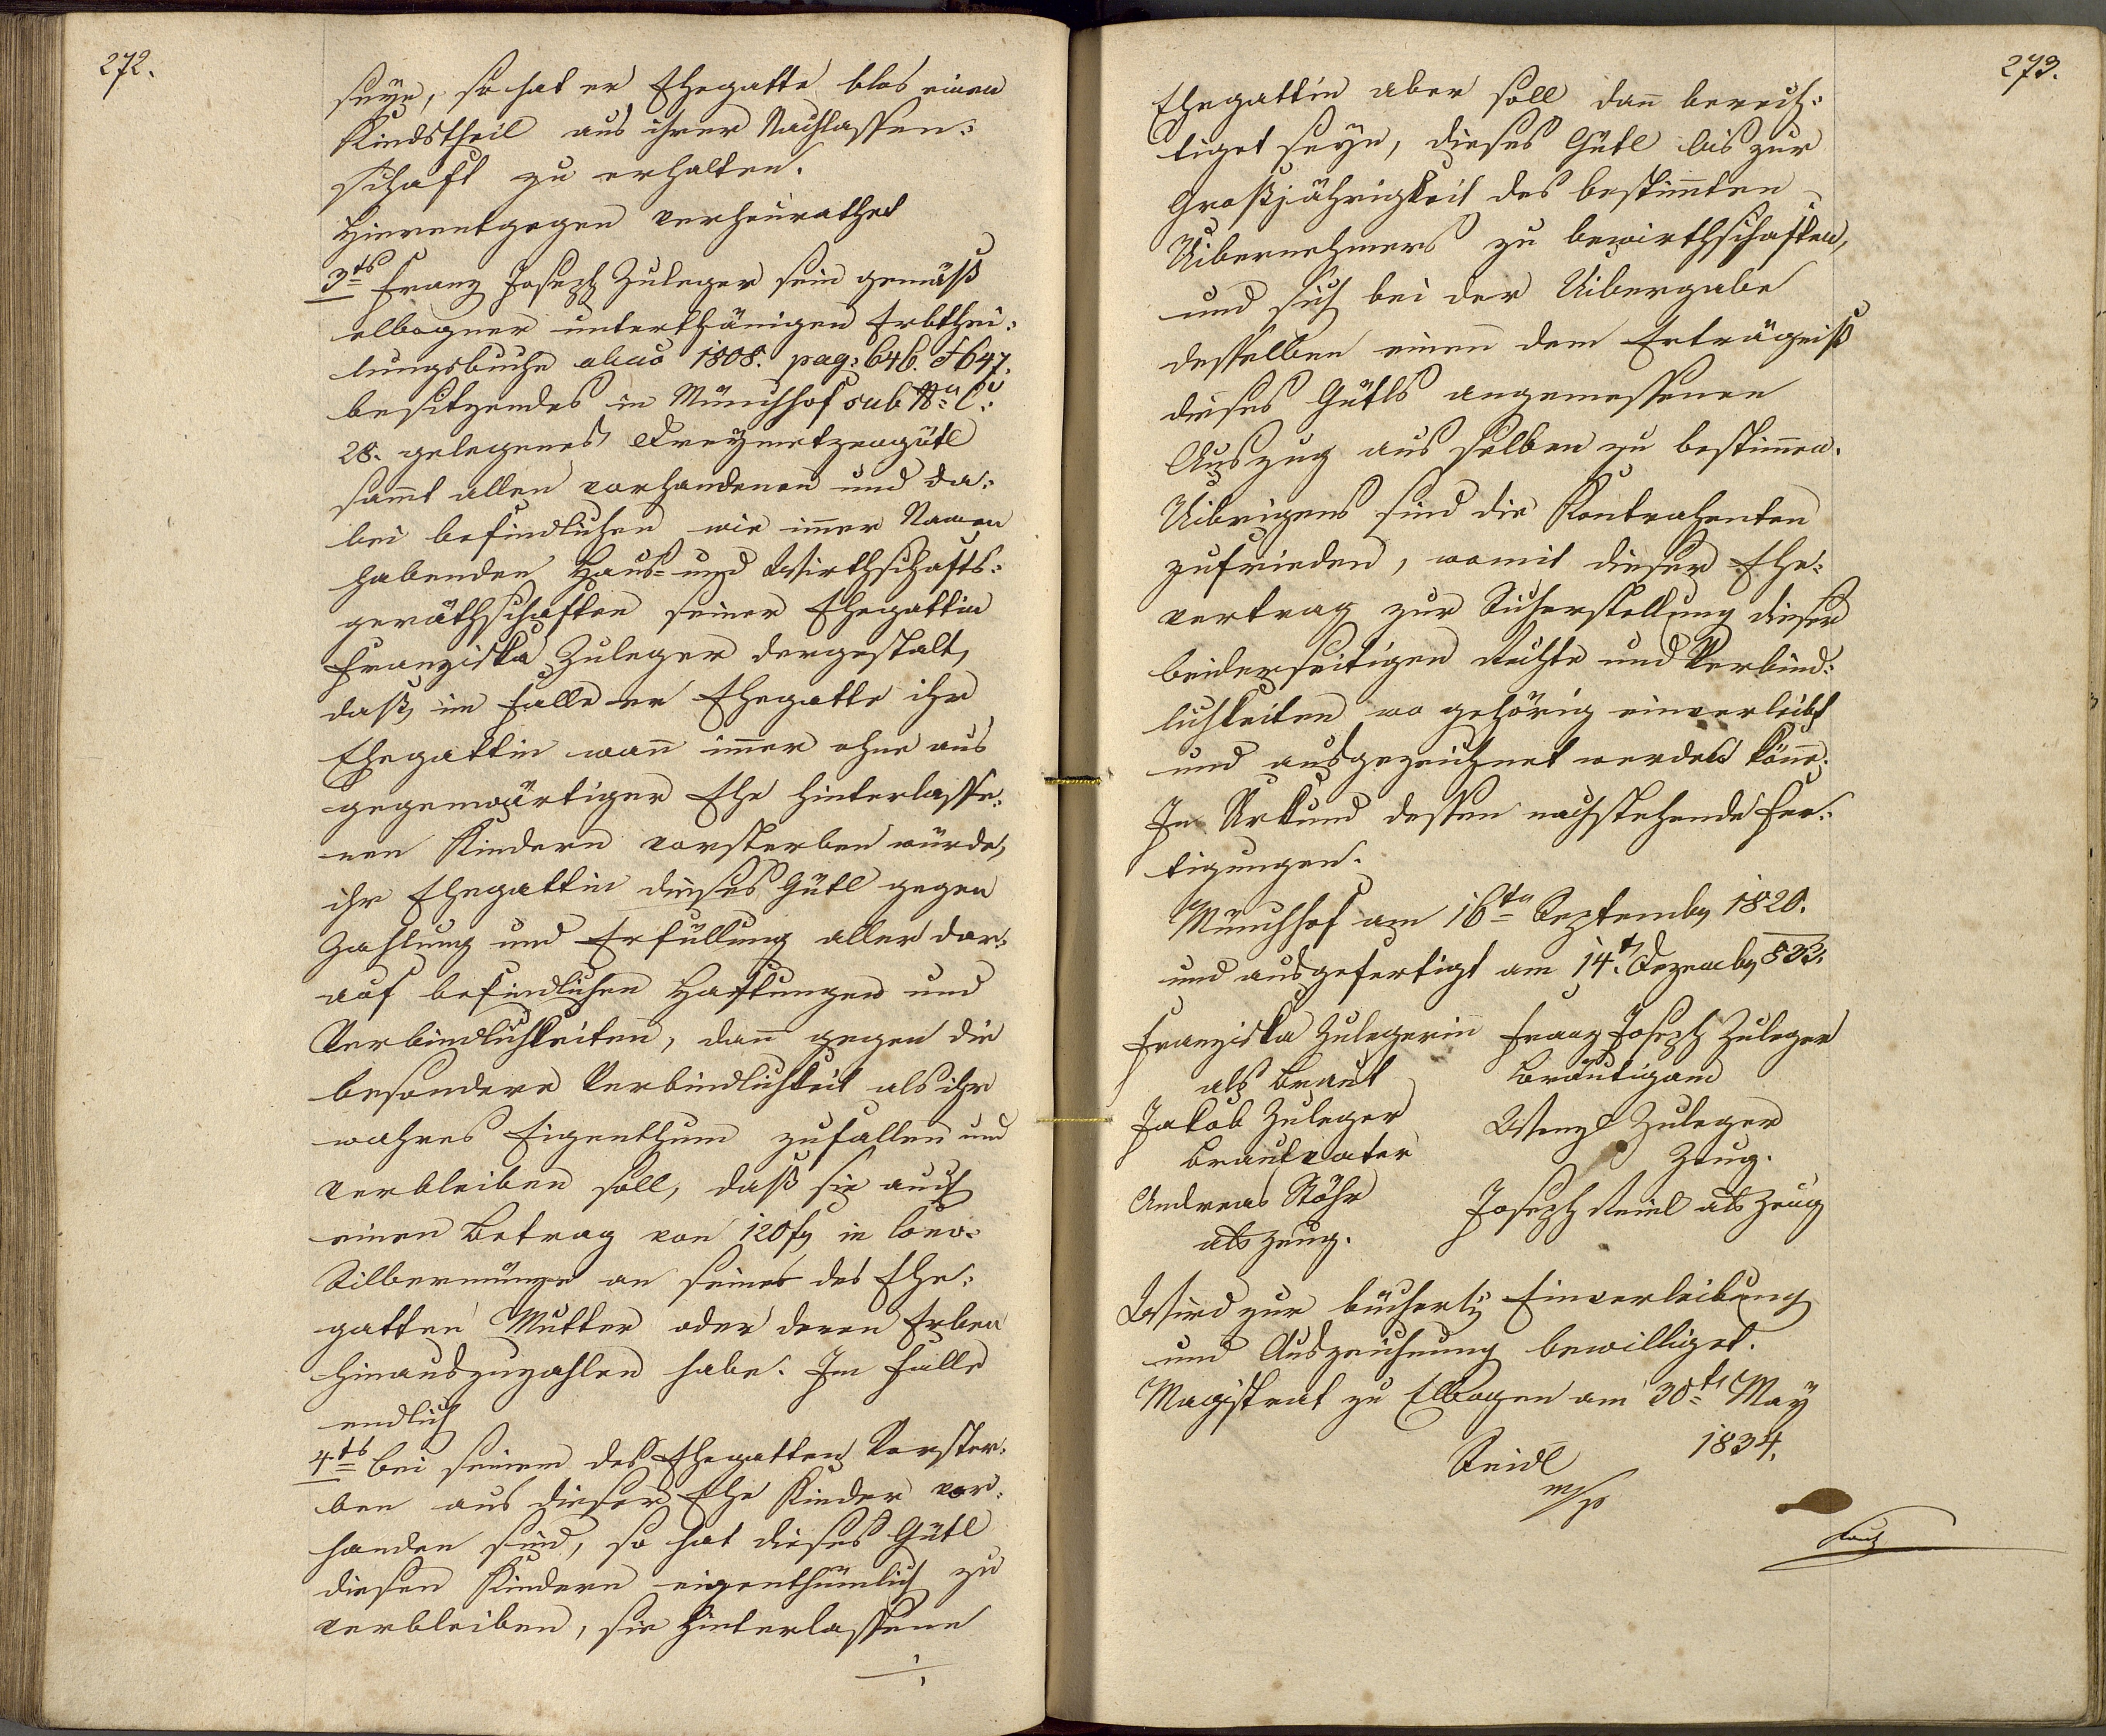 272.
seÿe, so hat er Ehegatte blos einen
Kindstheil aus ihrer Nachlassen:
schaft zu erhalten.
Hierentgegen verheurathet
3tens Franz Joseph Zuleger sein gemäß
elbogner unterthänigen Erbthei:
lungsbuche aõ 1808. pag: 646. & 647.
besitzendes in Münchhof sub No C:
28. gelegenes Dreÿmetzengütl
sam̄t allen vorhandenen und da:
bei befindlichen wie im̄er Namen
habenden Haus- und Wirthschafts:
geräthschaften seiner Ehegattin
Franziska Zuleger dergestalt,
daß, im Falle er Ehegatte ihr
Ehegattin wan̄ im̄er ohne aus
gegenwärtiger Ehe hinterlasse:
nen Kindern vorsterben würde,
ihr Ehegattin dieses Gütl gegen
Zahlung und Erfüllung aller dar:
auf befindlichen Haftungen und
Verbindlichkeiten, dan̄ gegen die
besondere Verbindlichkeit als ihr
wahres Eigenthum zufallen und
verbleiben soll, daß sie auch
einen Betrag von 120 f in Conv:
Silbermünze an seiner des Ehe:
gatten Mutter oder deren Erben
hinauszuzahlen habe. Im Falle
endlich
4tens bei seinem des Ehegatten Vorster:
ben aus dieser Ehe Kinder vor:
handen sind, so hat dieses Gütl
diesen Kindern eigenthümlich zu
verbleiben, sie hinterlassene
./.
273.
Ehegattin aber soll dan̄ berech:
tiget seÿn, dieses Gütl bis zur
Großjährigkeit des bestim̄ten
Uibernehmers zu bewirthschaften,
und sich bei der Uibergabe
desselben einen dem Erträgniß
dieses Gütls angemessenen
Auszug aus selben zu bestim̄en.
Uibrigens sind die Kontrahenten
zufrieden, womit dieser Ehe:
vertrag zur Sicherstellung dieser
beiderseitigen Rechte und Verbind:
lichkeiten wo gehörig einverleibt
und ausgezeichnet werden kön̄e.
In Urkund dessen nachstehende Fer:
tigungen.
Münchhof am 16ten Septemb 1820.
und ausgefertigt am 14t Dezemb 833.
Franziska Zulegerin̄ Franz Joseph Zuleger
als Braut Bräutigam
Jakob Zuleger Wenzl Zuleger
Brautvater Zeug.
Andreas Stöhr Joseph Reinl als Zeug
als Zeug.
Wird zur bücherl Einverleibung
und Auszeichnung bewilliget.
Magistrat zu Elbogen am 30ten Maÿ
1834.
Seidl
m/p